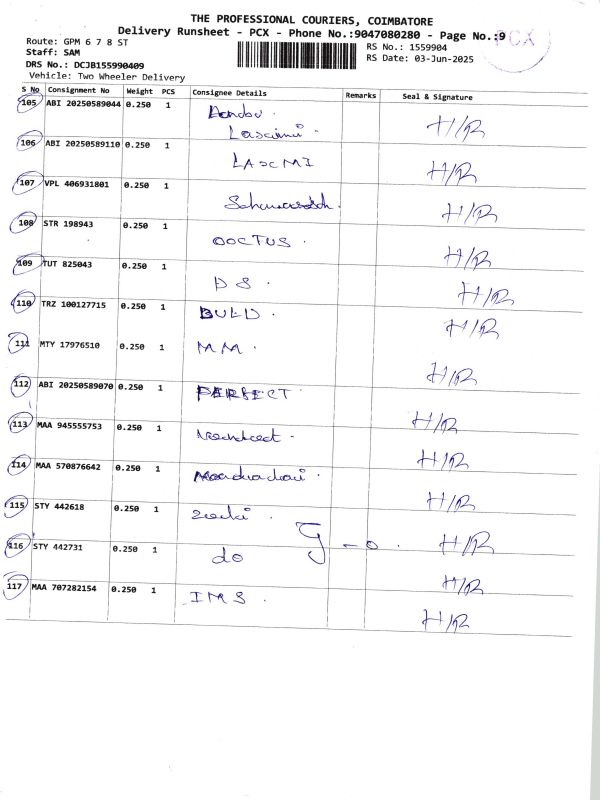 THE PROFESSIONAL COURIERS, COIMBATORE
Delivery Runsheet - PCX - Phone No.:9047080280 - Page No.:9
PCX
Route: GPM 6 7 8 ST
RS No.: 1559904
Staff: SAM
RS Date: 03-Jun-2025
DRS No.: DCJB155990409
Vehicle: Two Wheeler Delivery
S No Consignment No Weight PCS Consignee Details Remarks Seal & Signature
105 ABI 20250589044 0.250 1
H/R
106 ABI 20250589110 0.250 1 LAXMI H/R
107 VPL 406931801 0.250 1 H/R
108 STR 198943 0.250 1 OOCTUS. H/R
109 TUT 825043 0.250 1 DS. H/R
110 TRZ 100127715 0.250 1 BULD. H/R
111 MTY 17976510 0.250 1 MM. H/R
112 ABI 20250589070 0.250 1 PERFECT H/R
113 MAA 945555753 0.250 1 H/R
114 MAA 570876642 0.250 1 H/R
115 STY 442618 0.250 1 H/R
116 STY 442731 0.250 1 do H/R
117 MAA 707282154 0.250 1 IMS. H/R